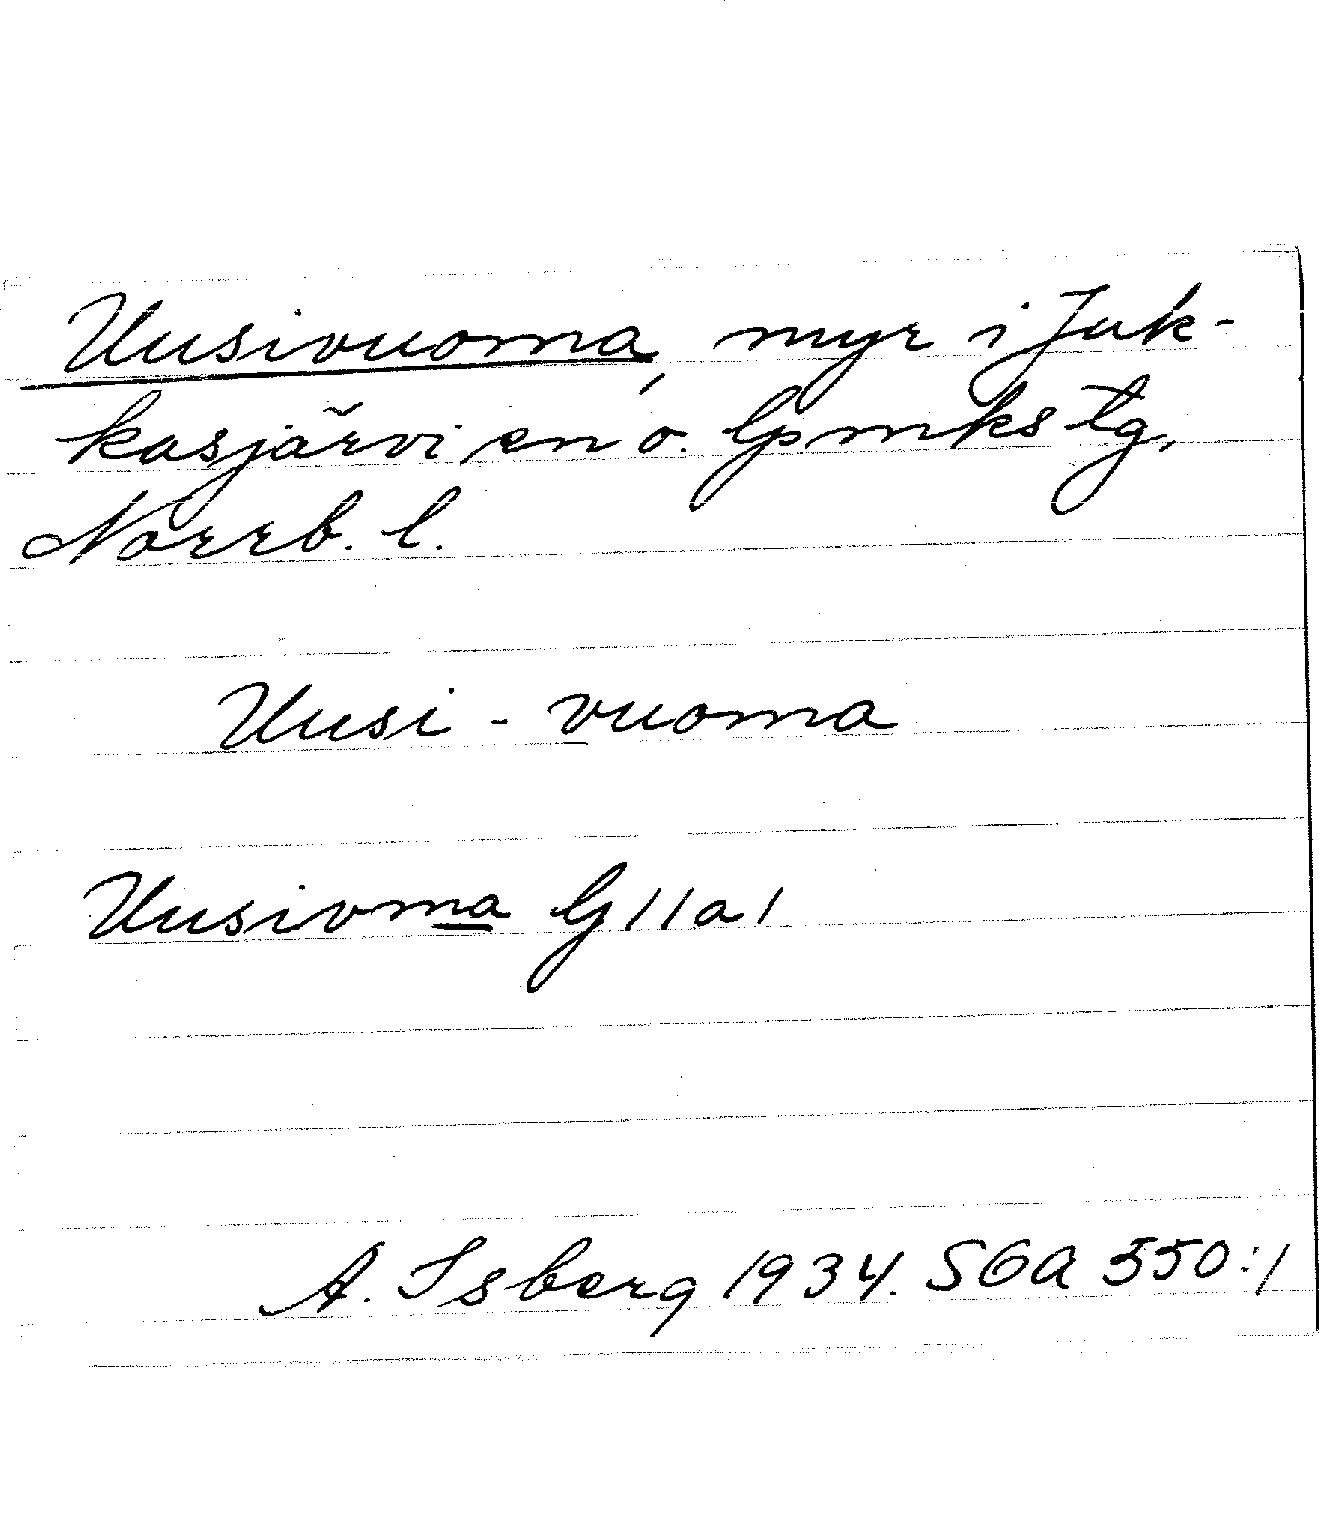 Uusivuoma, myr i Juk-
kasjärvi sn o. lpmks tg,
Norrb. l.
Uusi - vuoma
Uusivma G11a1
A. Isberg 1934. SOA 550:1